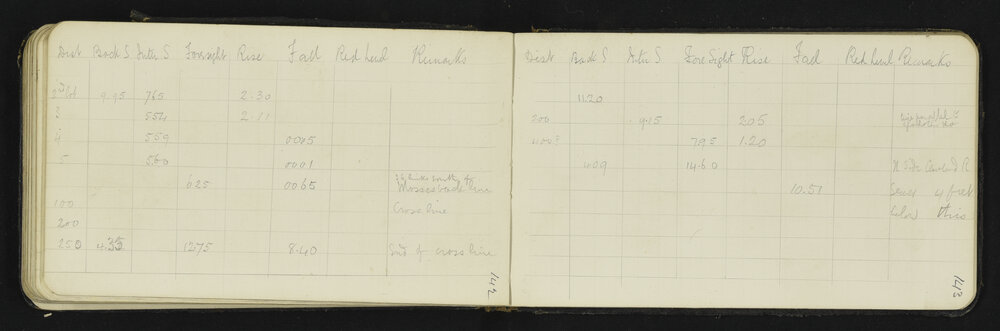 Dist Back S Inter S Foresight Rise Fall Red Level Remarks
9.95 765 2.30
3 554 2.11
4 559 0005
5 560 0001
625 0065 36 links south of
Mossesback line
100 Cross line
200
250 4.35 1275 8.40 End of cross line
142
Dist Back S Inter S Fore Sight Rise Fall Red Level Remarks
11.20
200 9.15 205
400 795 1.20
409 14.60 N Side R
10.51 Sewer 4 feet
below this
143